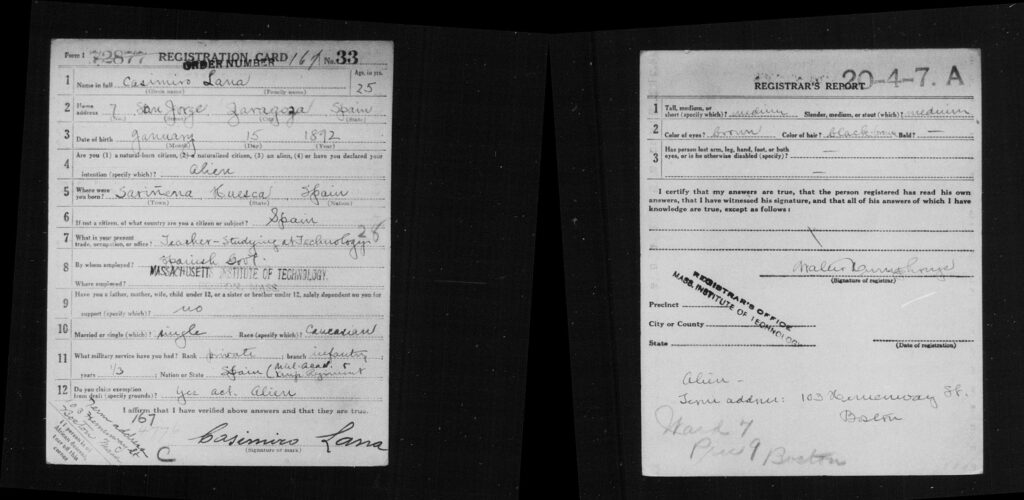 Form 1 72877 REGISTRATION CARD 167 No. 33
ORDER NUMBER
1 Name in full Casimiro Lana Age, in yrs. 25
(Given name) (Family name)
2 Home address 7 San Jorge Zaragoza Spain
(No.) (City) (State)
3 Date of birth January 15 1892
(Month) (Day) (Year)
4 Are you (1) a natural-born citizen, (2) a naturalized citizen, (3) an alien, (4) or have you declared your
intention (specify which)? Alien
5 Where were you born? Sariñena Huesca Spain
(Town) (State) (Nation)
6 If not a citizen, of what country are you a citizen or subject? Spain
7 What is your present trade, occupation, or office? Teacher - Studying at Technology 28
8 By whom employed? Spanish Gov't.
MASSACHUSETTS INSTITUTE OF TECHNOLOGY.
Where employed? BOSTON, MASS.
9 Have you a father, mother, wife, child under 12, or a sister or brother under 12, solely dependent on you for
support (specify which)? no
10 Married or single (which)? single Race (specify which)? Caucasian
11 What military service have you had? Rank private ; branch infantry
years 1/3 ; Nation or State Spain
12 Do you claim exemption from draft (specify grounds)? Yes act. Alien
I affirm that I have verified above answers and that they are true.
167
C Casimiro Lana
(Signature or mark)
Term address
103 Hemenway St
Boston Mass
If person is of African descent, tear off this corner
REGISTRAR'S REPORT 20-4-7. A
1 Tall, medium, or short (specify which)? medium Slender, medium, or stout (which)? medium
2 Color of eyes? brown Color of hair? black Bald? —
3 Has person lost arm, leg, hand, foot, or both
eyes, or is he otherwise disabled (specify)? —
—
I certify that my answers are true, that the person registered has read his own
answers, that I have witnessed his signature, and that all of his answers of which I have
knowledge are true, except as follows:
Walter Humphreys
(Signature of registrar)
REGISTRAR'S OFFICE
MASS. INSTITUTE OF TECHNOLOGY
Precinct
City or County
State
(Date of registration)
Alien -
Term address: 103 Hemenway St.
Boston
Ward 7
Prec 9 Boston